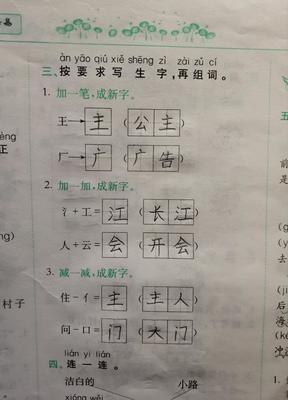 àn yāo qiú xiě shēng zì zài zǔ cí
三、按要求写生字,再组词。
1. 加一笔,成新字。
王→主(公主)
厂→广(广告)
2. 加一加,成新字。
氵+工=江(长江)
人+云=会(开会)
3. 减一减,成新字。
住-亻=主(主人)
问-口=门(大门)
lián yi lián
四、连一连。
洁白的 小路
èng
正
ng)
村子
五
前
去
后
海